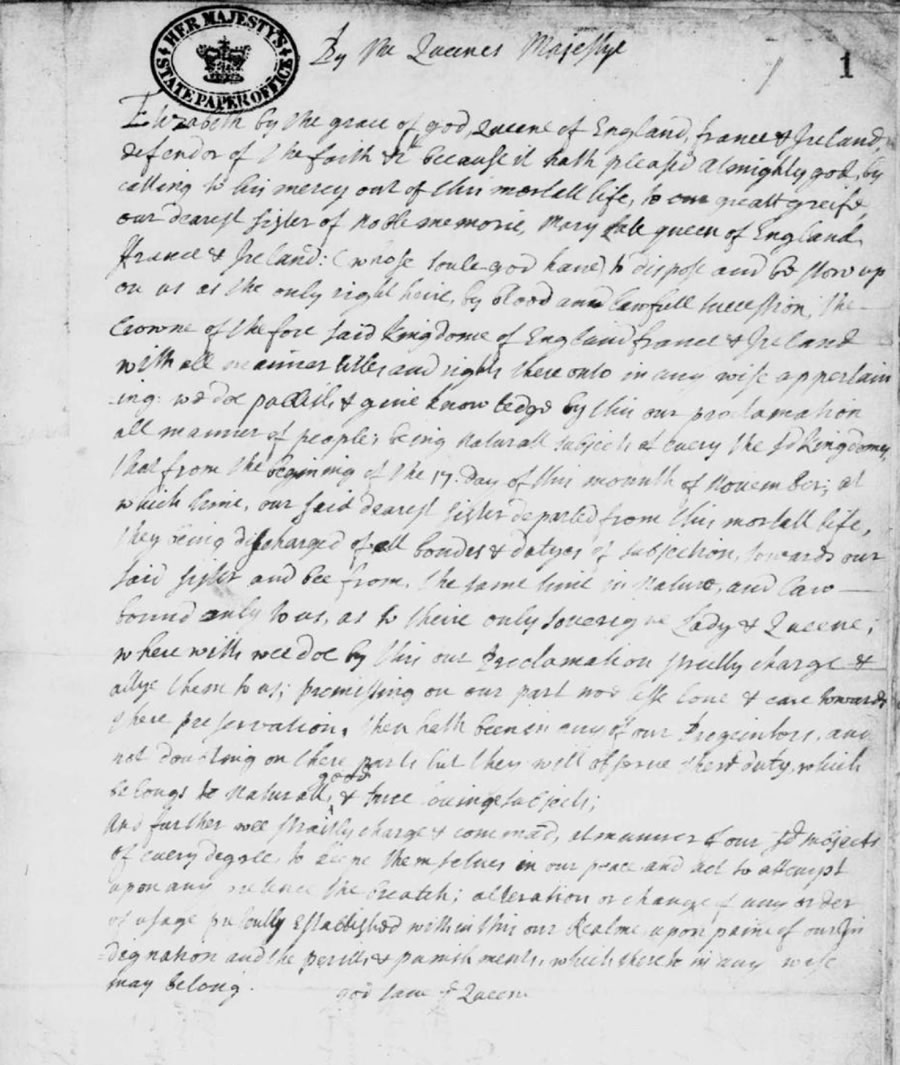 HER MAJESTY'S
STATE PAPER OFFICE
By the Queenes Majestye
1
Elizabeth by the grace of god, Queene of England, france & Ireland,
defendor of the faith &c because it hath pleased Almighty god, by
calling to his mercy out of this mortall life, to our greatt greife,
our dearest sister of Noble memorie, Mary late queen of England
France & Ireland: (whose soule god have) to dispose and bestow up
on us as the only right heire, by blood and lawfull succession, the
Crowne of the fore said kingdome of England france & Ireland
with all manner titles and rights there onto in any wise appertain
-ing: we doe publish & give knowledge by this our proclamation
all manner of people, being Naturall subjects of every the sd kingdomes,
that from the beginning of the 17. day of this mounth of November; at
which time, our said dearest sister departed from this mortall life,
they being discharged of all bondes & dutyes of subjection, towards our
said sister and bee from, the same time in Nature, and Law
bound only to us, as to theire only Sovereigne Lady & Queene;
where with wee doe by this our Proclamation streetly charge &
allye them to us; promissing on our part noe lesse love & care towards
there preservation, then hath been in any of our Progenitors, and
not doubting on there parts but they will observe there duty, which
belongs to Naturall, good & true loving subjects;
And further wee straitly charge & command, al manner of our sd subjects
of every degree, to keepe themselves in our peace and not to attempt
upon any pretence the breatch; alteration or change of any order
of usage presently Established within this our Realme, upon paine of our In
dignation and the perills & punishments, which thereto in any wise
may belong. god save ye Queene